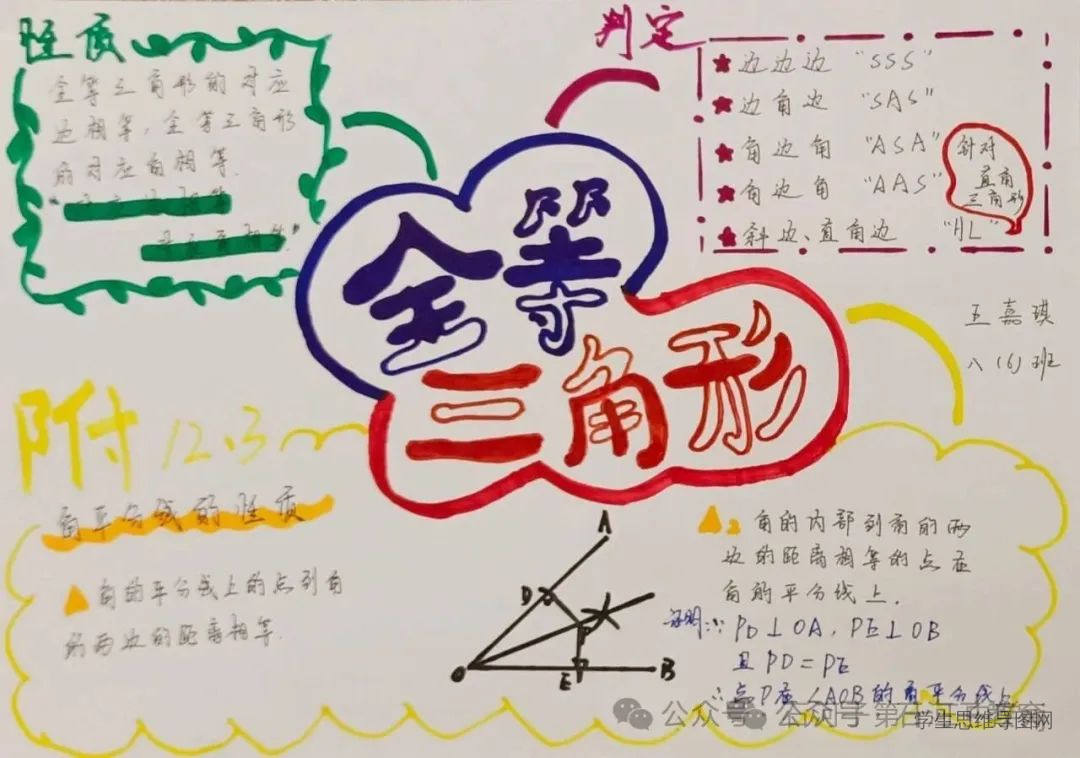 性质
全等三角形的对应
边相等,全等三角形
的对应角相等.
判定
★边边边 "SSS"
★边角边 "SAS"
★角边角 "ASA"
★角边角 "AAS"
★斜边、直角边 "HL"
针对
直角
三角形
全等
三角形
王嘉琪
八(6)班
附 12.3
角平分线的性质
▲角的平分线上的点到角
的两边的距离相等.
A
D
P
O
E
B
▲2 角的内部到角的两
边的距离相等的点在
角的平分线上.
证明:∵PD⊥OA,PE⊥OB
且PD=PE
∴点P在∠AOB的角平分线上
公众号
学生思维导图网